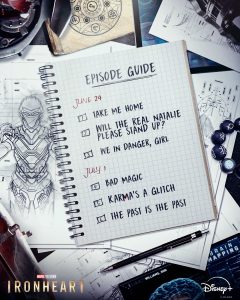 EPISODE GUIDE
JUNE 24
TAKE ME HOME
WILL THE REAL NATALIE
PLEASE STAND UP?
WE IN DANGER, GIRL
JULY 1
BAD MAGIC
KARMA'S A GLITCH
THE PAST IS THE PAST
BRAIN
MAPPING
MARVEL STUDIOS
IRONHEART
Disney+